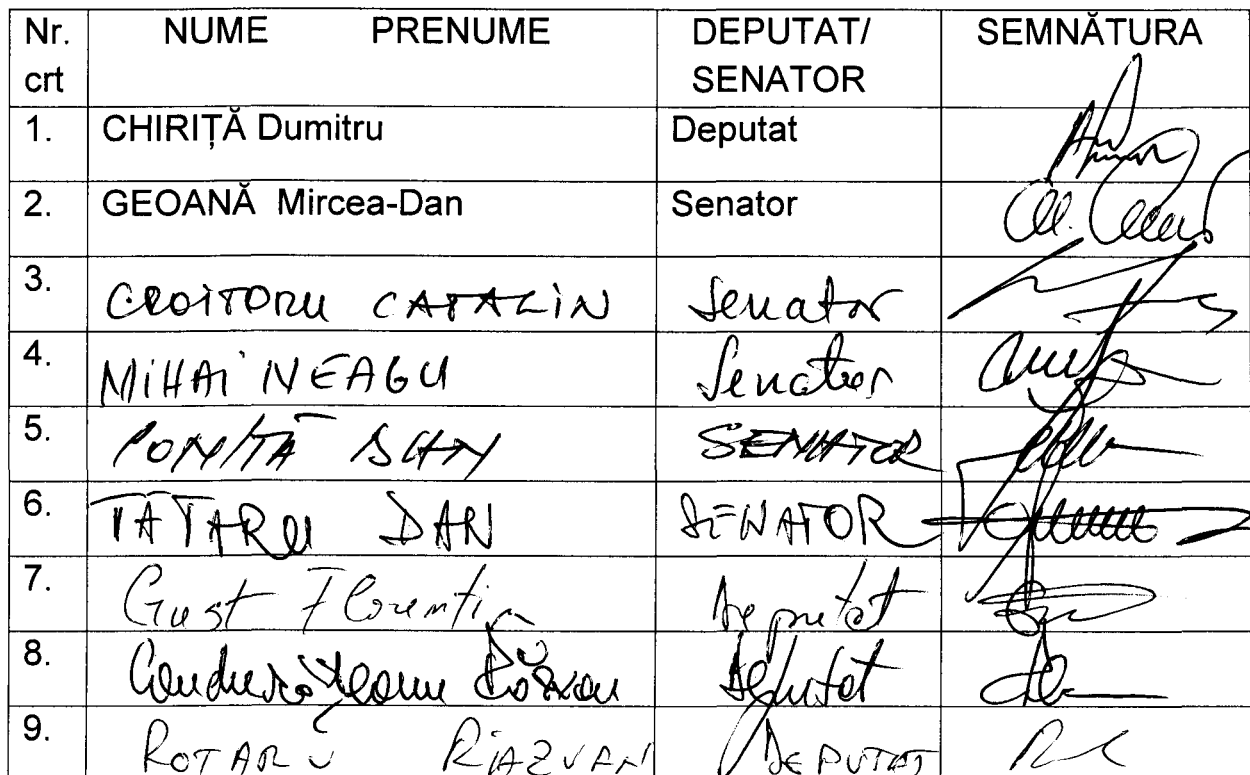 Nr. crt NUME PRENUME DEPUTAT/ SENATOR SEMNĂTURA
1. CHIRIȚĂ Dumitru Deputat
2. GEOANĂ Mircea-Dan Senator
3. CROITORU CATALIN Senator
4. MIHAI NEAGU Senator
5. SENATOR
6. TĂTARU DAN SENATOR
7. Gust Florentin Deputat
8. Deputat
9. ROTARU RĂZVAN DEPUTAT